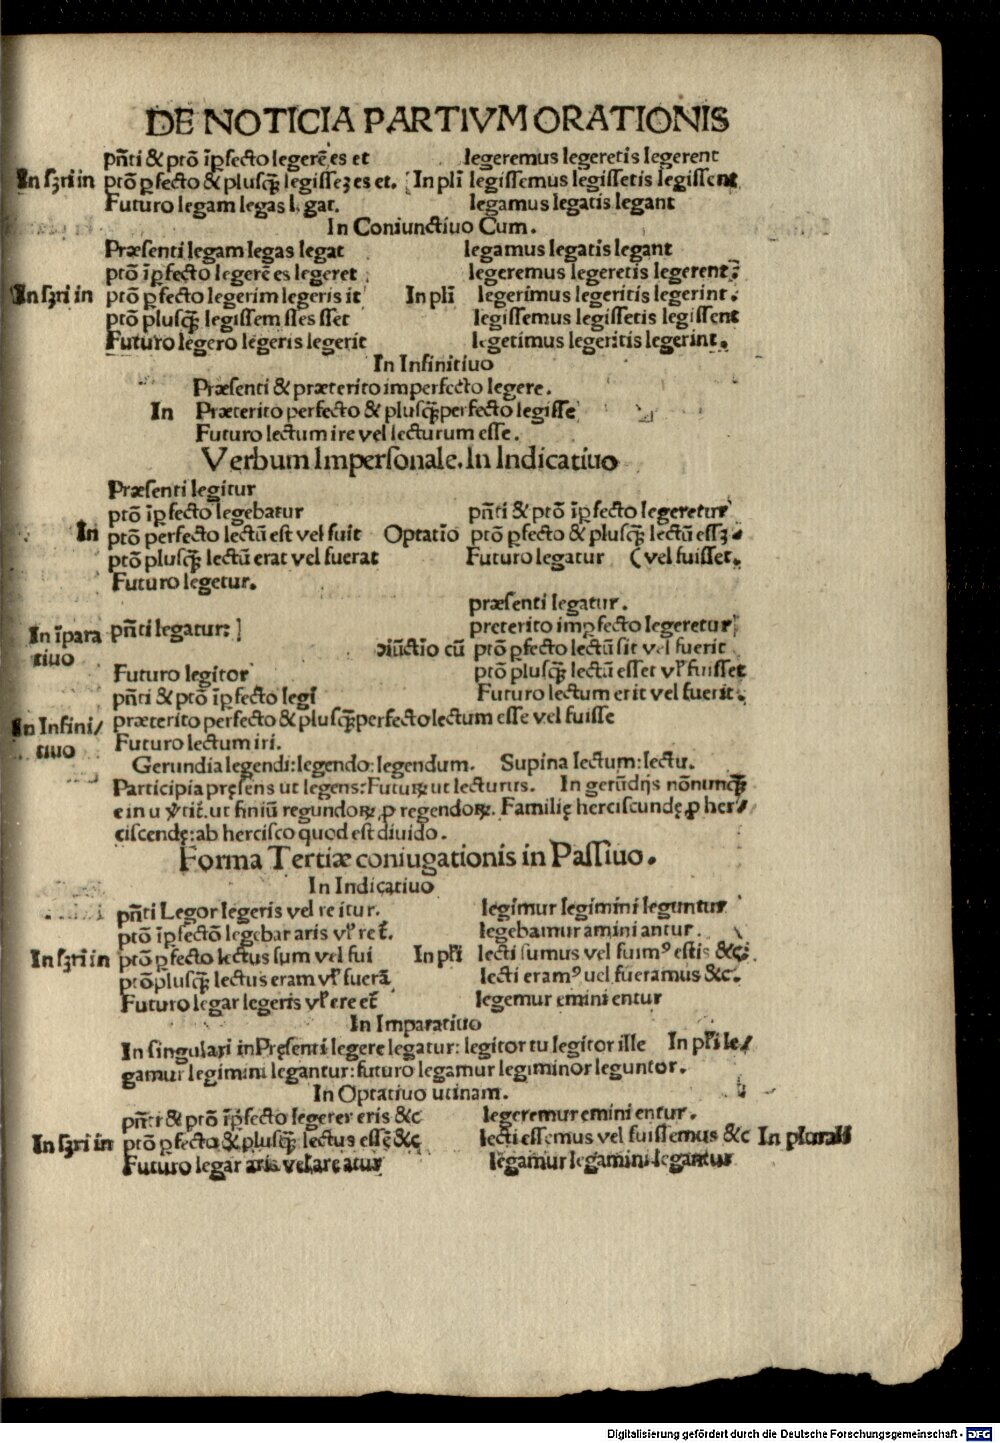 DE NOTICIA PARTIVM ORATIONIS
pñti & ptõ ĩpfecto legerẽ es et legeremus legeretis legerent
In sꝫri in ptõ ꝑfecto & plusq̃ꝫ legisseꝫ es et. In plĩ legissemus legissetis legissent
Futuro legam legas legat. legamus legatis legant
In Coniunctiuo Cum.
Præsenti legam legas legat legamus legatis legant
ptõ ĩpfecto legerẽ es legeret legeremus legeretis legerent:
In sꝫri in ptõ ꝑfecto legerim legeris it In plĩ legerimus legeritis legerint.
ptõ plusq̃ꝫ legissem sses sset legissemus legissetis legissent
Futuro legero legeris legerit legerimus legeritis legerint.
In Infinitiuo
Præsenti & præterito imperfecto legere.
In Præterito perfecto & plusq̃ꝫperfecto legisse
Futuro lectum ire vel lecturum esse.
Verbum Impersonale. In Indicatiuo
Præsenti legitur
ptõ ĩpfecto legebatur pñti & ptõ ĩpfecto legeretur
In ptõ perfecto lectũ est vel fuit Optatiõ ptõ ꝑfecto & plusq̃ꝫ lectũ essꝫ
ptõ plusq̃ꝫ lectũ erat vel fuerat Futuro legatur (vel fuisset.
Futuro legetur.
præsenti legatur.
In ĩpara pñti legatur: preterito impfecto legeretur
tiuo ↄiũctĩo cũ ptõ ꝑfecto lectũ sit vel fuerit
Futuro legitor ptõ plusq̃ꝫ lectũ esset vl̕ fuisset
pñti & ptõ ĩpfecto legi Futuro lectum erit vel fuerit.
In Infini/ præterito perfecto & plusq̃ꝫperfecto lectum esse vel fuisse
tiuo Futuro lectum iri.
Gerundia legendi: legendo: legendum. Supina lectum: lectu.
Participia pręsens ut legens: Futurꝫ ut lecturus. In gerũdijs nõnunq̃ꝫ
e in u v̕tit̃. ut finiũ regundoꝝ, ꝓ regendoꝝ. Familię herciscundę ꝓ her/
ciscendę: ab hercisco quod est diuido.
Forma Tertiæ coniugationis in Passiuo.
In Indicatiuo
pñti Legor legeris vel re itur. legimur legimini leguntur
ptõ ĩpfectõ legebar aris vl̕ ret̃. legebamur amini antur.
In sꝫri in ptõ ꝑfecto lectus sum vel fui In pl̕i lecti sumus vel fuimꝰ estis &c:
ptõ plusq̃ꝫ lectus eram vl̕ fuerã lecti eramꝰ uel fueramus &c.
Futuro legar legeris vl̕ ere et̃ legemur emini entur
In Imparatiuo
In singulari in Pręsenti legere legatur: legitor tu legitor ille In pl̕i le/
gamur legimini legantur: futuro legamur legiminor leguntor.
In Optatiuo utinam.
pñti & ptõ ĩpfecto legerer eris &c legeremur emini entur.
In sꝫri in ptõ ꝑfecto & plusq̃ꝫ lectus essẽ &c lecti essemus vel fuissemus &c In plurali
Futuro legar aris vel are atur legamur legamini legantur
Digitalisierung gefördert durch die Deutsche Forschungsgemeinschaft - DFG